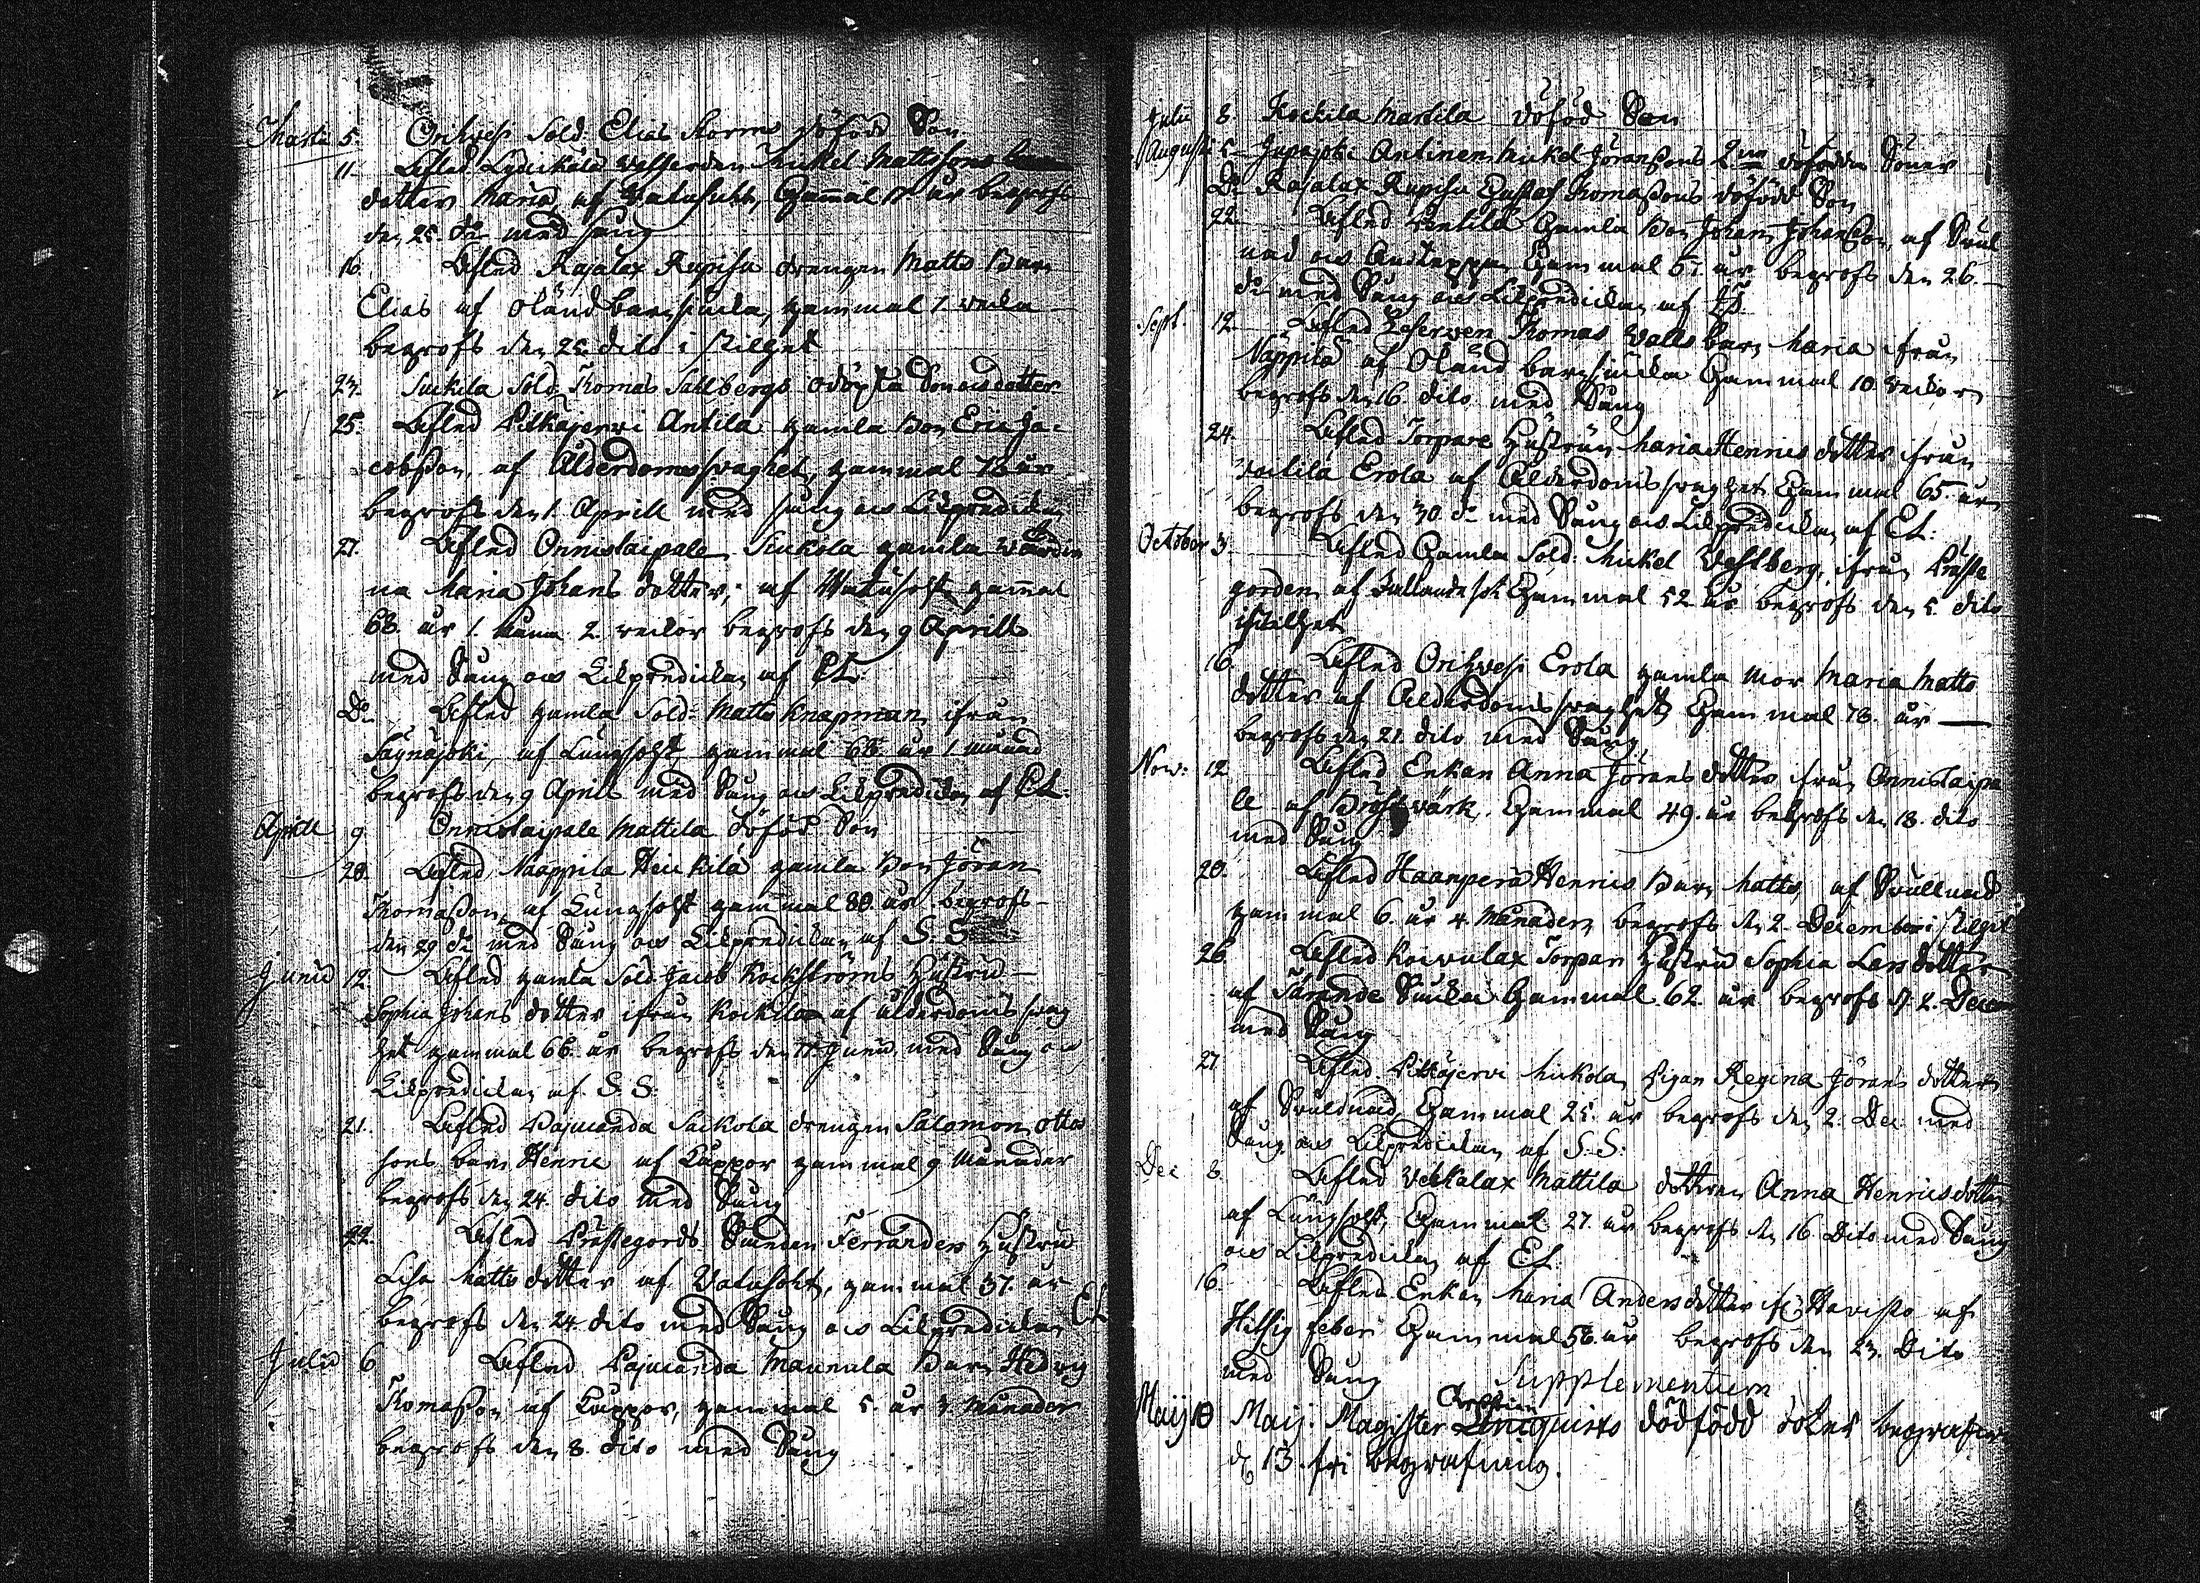 Martii 5. Orihvesi Sold. Elias Storms döfödd Son
11. Afled Lyseikälä Mickel Mattssons
dotter Maria, af Watusukt, Gammal 11 år begrofs
den 25. do med sång
16. Afled Rajalax Rupisa drengen Matts Barn
Elias af oländ barnsiuka, gammal 1. vecka
begrofs den 25. dito i stilhet
23. Suikila Sold. Thomas Sahlbergs odöpta Son och dotter
25. Afled Pitkäjerwi Antila gamla Bon Eric Ja-
cobsson, af Ålderdomsswaghet, gammal 73 år
begrofs den 1. Aprill med sång och Likpredikan
27. Afled Onnistaipale Seikola gamla wärdin
na Maria Johans dotter, af Watusoht gammal
68. år 1. månad 2. veckor begrofs den 9 Aprills
med Sång och Likpredikan af EL.
Do Afled gamla Sold. Matts Knapman ifrån
Säynäjoki, af Lungsoht, gammal 68. år 1. månad
begrofs den 9 April med Sång och Likpredikan af EL.
Aprill 9 Onnistaipale Mattila döföd Son
20. Afled Näppilä Heickilä gamla Bon Jöran
Thomasson, af Lungsoht gammal 80. år begrofs
den 29 do med Sång och Likpredikan af S. S
Junii 12. Afled gamla Sold. Jacob Kockströms Hustru
Sophia Johans dotter ifrån Kockila af ålderdoms swag
het gammal 66. år begrofs den 17. Junii med Sång och
Likpredikan af S. S.
21. Afled Pajuranda Seikola drengen Salomon Otto
sons barn Henric af Kåppor gammal 9 Månader
begrofs den 24. dito med Sång
22. Afled Prästegords Smeden Ferranders Hustru
Lisa Matts dotter af Watusoht, gammal 37. år
begrofs den 24. dito med Sång och Likpredikan EL
Julii 6 Afled Pajuranda Maunula Barn Hedvig
Thomasson af Kåppor, gammal 5. år 3 Månader
begrofs den 8. dito med Sång
Julii 8. Kockila Martila döföd Son
Augusti 5 Jupajoki Antinen Mickel Jöranssons 2ne döfödda Söner
Do Rajalax Rupisa Gustaf Thomassons döfödd Son
22. Afled Pentilä Gamla Bon Johan Johansson, af
Gammal 57. år begrofs den 26.
do med Sång och Likpredikan af
Sept. 12. Afled Thomas Walls barn Maria ifrån
Näppilä af Oländ barnsiucka Gammal 10 veckor
begrofs den 16 dito med Sång
24. Afled Torpare Hustrun Maria Henrics dotter ifrån
Erola af Ålderdomsswaghet Gammal 65. år
begrofs den 30. do med Sång och Likpredikan af EL.
October 3. Afled Gamla Sold. Mickel Westberg, ifrån Präste
gorden af fallandesot Gammal 52 år begrofs den 5. dito
i stilhet
16. Afled Orihvesi Erola gamla Mor Maria Matts
dotter af Ålderdomsswaghet Gammal 78. år
begrofs den 21. dito med Sång
Now: 12 Afled Enkan Anna Jörans dotter ifrån Onnistaipa
le af Bröstvärk, Gammal 49. år begrofs den 18. dito
med Sång
20. Afled Haanperä Henrics Barn Matts, af
gammal 6. år 4. Månader begrofs den 2. December i stilhet
26. Afled Koivulax Torpare Hustru Sophia Lars dotter
af Tärande Siucka Gammal 62. år begrofs d. 2. Decem
med Sång
27 Afled Pitkäjervi Mickola Pigan Regina Jörans dotter
af Gammal 25. år begrofs den 2. Dec. med
Sång och Likpredikan af S. S.
Dec 8. Afled Vekkalax Mattila dottren Anna Henricsdotter
af Lungsoht, Gammal 27. år begrofs den 16 Dito med Sång
och Likpredikan af EL.
16. Afled Enkan Maria Andersdotter Havisto af
Hitsig feber Gammal 56 år begrofs den 23. Dito
med Sång
Supplementum
Maij 10 Maij. Magister dödfödd doter begrafwen
d. 13. fri begrafning.